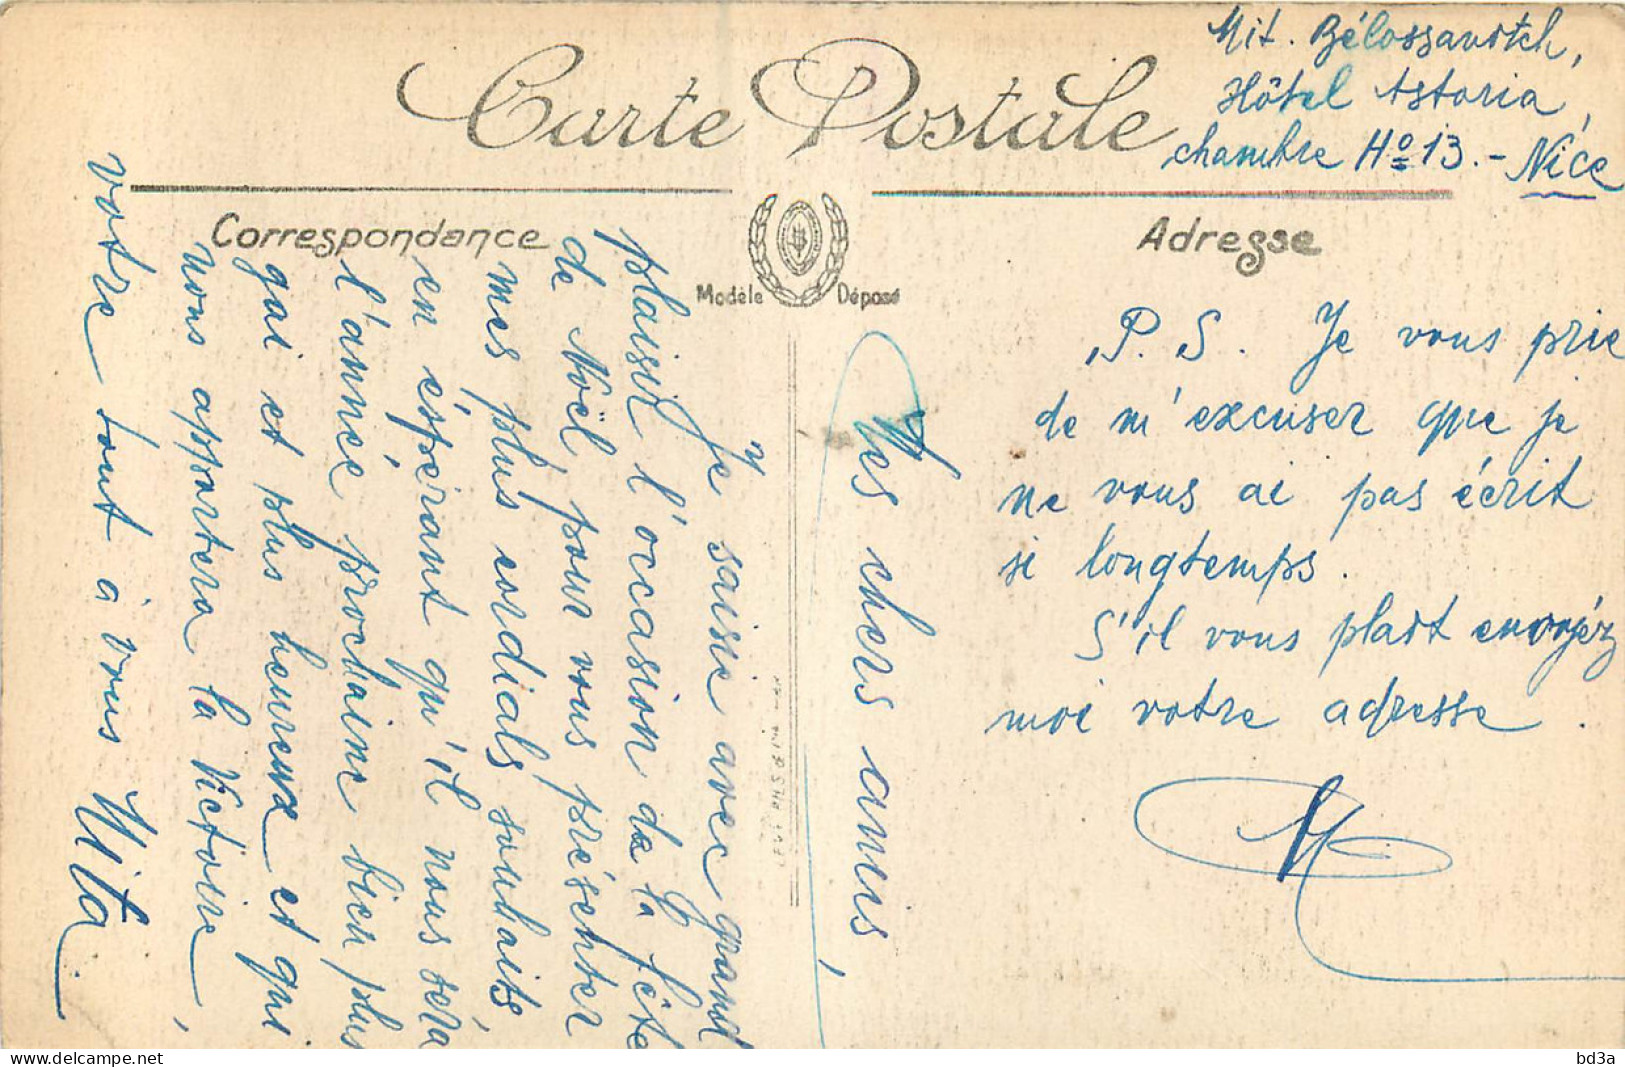 Mit. Bélossavitch,
Hôtel Astoria,
chambre No 13. - Nice
Carte Postale
Correspondance
Modèle Déposé
Adresse
Mes chers amis,
Je saisie avec grand
plaisir l'occasion de la fête
de Noël, pour vous présenter
mes plus cordials souhaits,
en éspérant qu'il nous séra
l'année prochaine bien plus
gai et plus heureux et qui
nous apportera la Victoire,
votre tout à vous Mita
P.S. Je vous prie
de m'excuser que je
ne vous ai pas écrit
si longtemps.
S'il vous plaît envoyéz
moi votre adresse.
M
bd3a